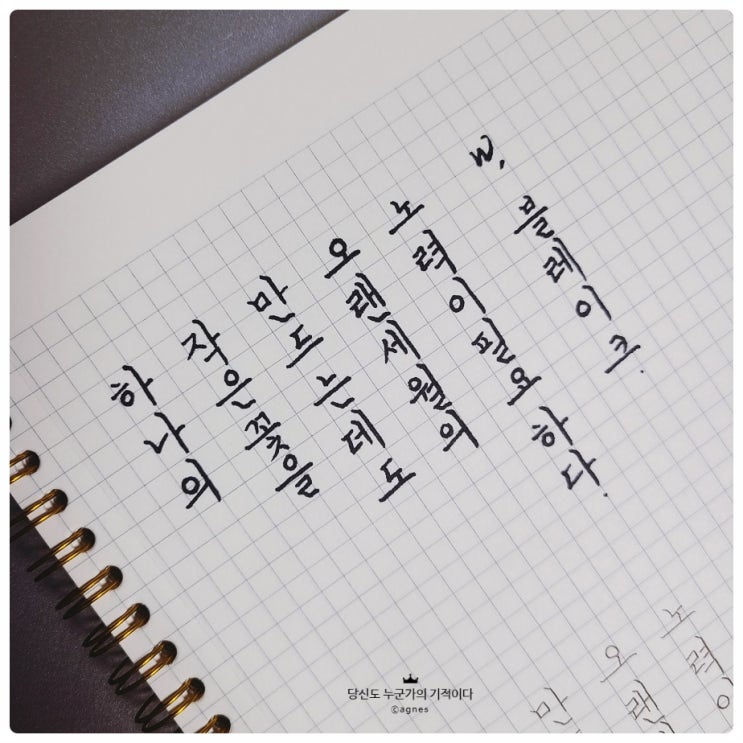 하나의
작은꽃을
만드는데도
오랜세월의
노력이필요하다.
W. 블레이크.
노력이
오랜
만
당신도 누군가의 기적이다
©agnes